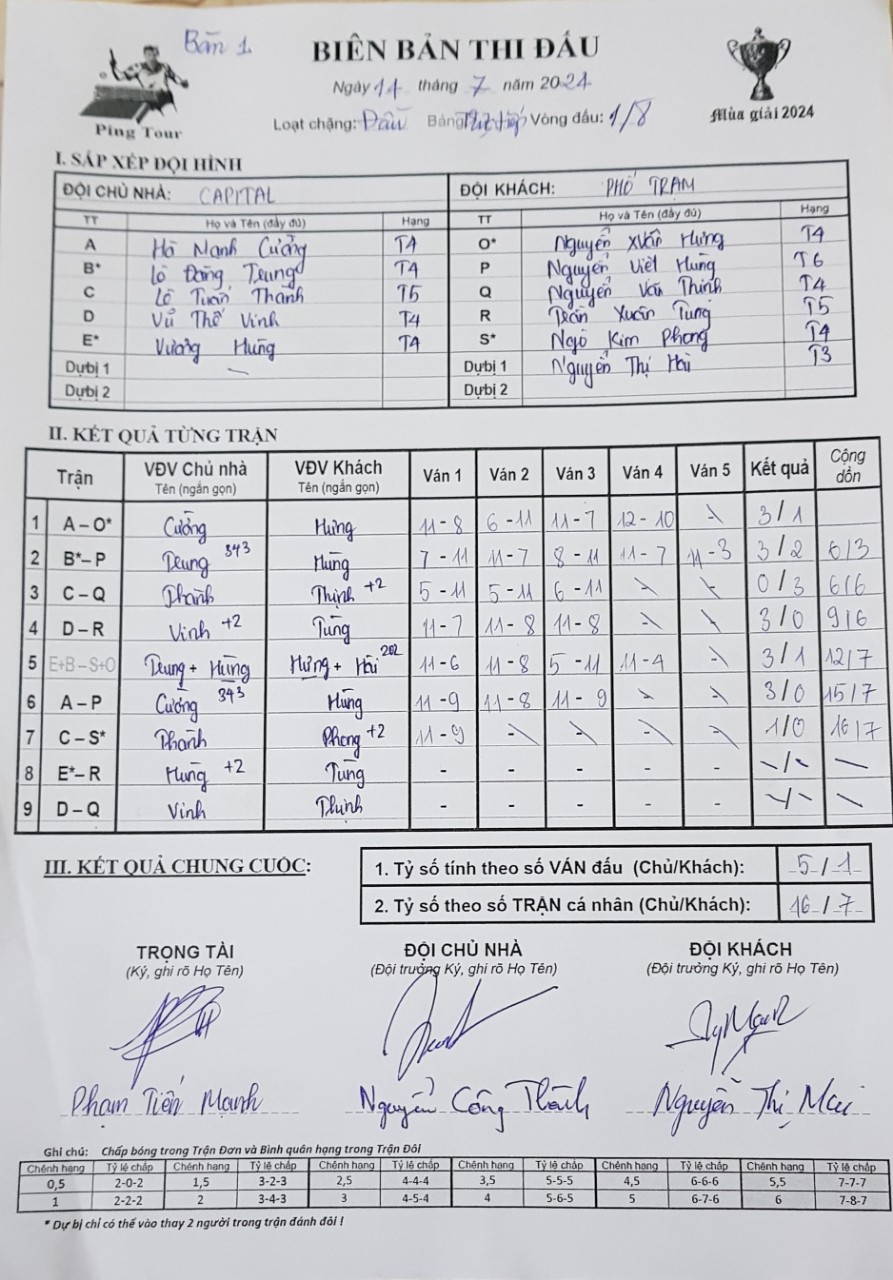 Bàn 1.
BIÊN BẢN THI ĐẤU
Ngày 14 tháng 7 năm 2024
Ping Tour
Loạt chặng: Đấu Bảng: Vòng đấu: 1/8
Mùa giải 2024
I. SẮP XẾP ĐỘI HÌNH
ĐỘI CHỦ NHÀ: CAPITAL ĐỘI KHÁCH: PHỐ TRẠM
TT Họ và Tên (đầy đủ) Hạng TT Họ và Tên (đầy đủ) Hạng
A Hồ Mạnh Cường T4 O* Nguyễn Xuân Hưng T4
B* Lê Đăng Trung T4 P Nguyễn Việt Hùng T6
C Lê Tuấn Thành T5 Q Nguyễn Văn Thịnh T4
D Vũ Thế Vinh T4 R Trần Xuân Tùng T5
E* Vương Hưng T4 S* Ngô Kim Phong T4
Dự bị 1 - Dự bị 1 Nguyễn Thị Hài T3
Dự bị 2 Dự bị 2
II. KẾT QUẢ TỪNG TRẬN
Trận VĐV Chủ nhà Tên (ngắn gọn) VĐV Khách Tên (ngắn gọn) Ván 1 Ván 2 Ván 3 Ván 4 Ván 5 Kết quả Cộng dồn
1 A – O* Cường Hưng 11 - 8 6 - 11 11 - 7 12 - 10 - 3 / 1
2 B* – P Trung 343 Hùng 7 - 11 11 - 7 8 - 11 11 - 7 11 - 3 3 / 2 6/3
3 C – Q Thành Thịnh +2 5 - 11 5 - 11 6 - 11 - - 0 / 3 6/6
4 D – R Vinh +2 Tùng 11 - 7 11 - 8 11 - 8 - - 3 / 0 9/6
5 E+B – S+O Trung + Hưng Hưng + Hài 202 11 - 6 11 - 8 5 - 11 11 - 4 - 3 / 1 12/7
6 A – P Cường 343 Hùng 11 - 9 11 - 8 11 - 9 - - 3 / 0 15/7
7 C – S* Thành Phong +2 11 - 9 - - - - 1 / 0 16/7
8 E* – R Hưng +2 Tùng - - - - - - / - -
9 D – Q Vinh Thịnh - - - - - - / - -
III. KẾT QUẢ CHUNG CUỘC:
1. Tỷ số tính theo số VÁN đấu (Chủ/Khách): 5 / 1
2. Tỷ số theo số TRẬN cá nhân (Chủ/Khách): 16 / 7
TRỌNG TÀI ĐỘI CHỦ NHÀ ĐỘI KHÁCH
(Ký, ghi rõ Họ Tên) (Đội trưởng Ký, ghi rõ Họ Tên) (Đội trưởng Ký, ghi rõ Họ Tên)
Phạm Tiến Mạnh Nguyễn Công Thành Nguyễn Thị Mai
Ghi chú: Chấp bóng trong Trận Đơn và Bình quân hạng trong Trận Đôi
Chênh hạng Tỷ lệ chấp Chênh hạng Tỷ lệ chấp Chênh hạng Tỷ lệ chấp Chênh hạng Tỷ lệ chấp Chênh hạng Tỷ lệ chấp Chênh hạng Tỷ lệ chấp
0,5 2-0-2 1,5 3-2-3 2,5 4-4-4 3,5 5-5-5 4,5 6-6-6 5,5 7-7-7
1 2-2-2 2 3-4-3 3 4-5-4 4 5-6-5 5 6-7-6 6 7-8-7
* Dự bị chỉ có thể vào thay 2 người trong trận đánh đôi !